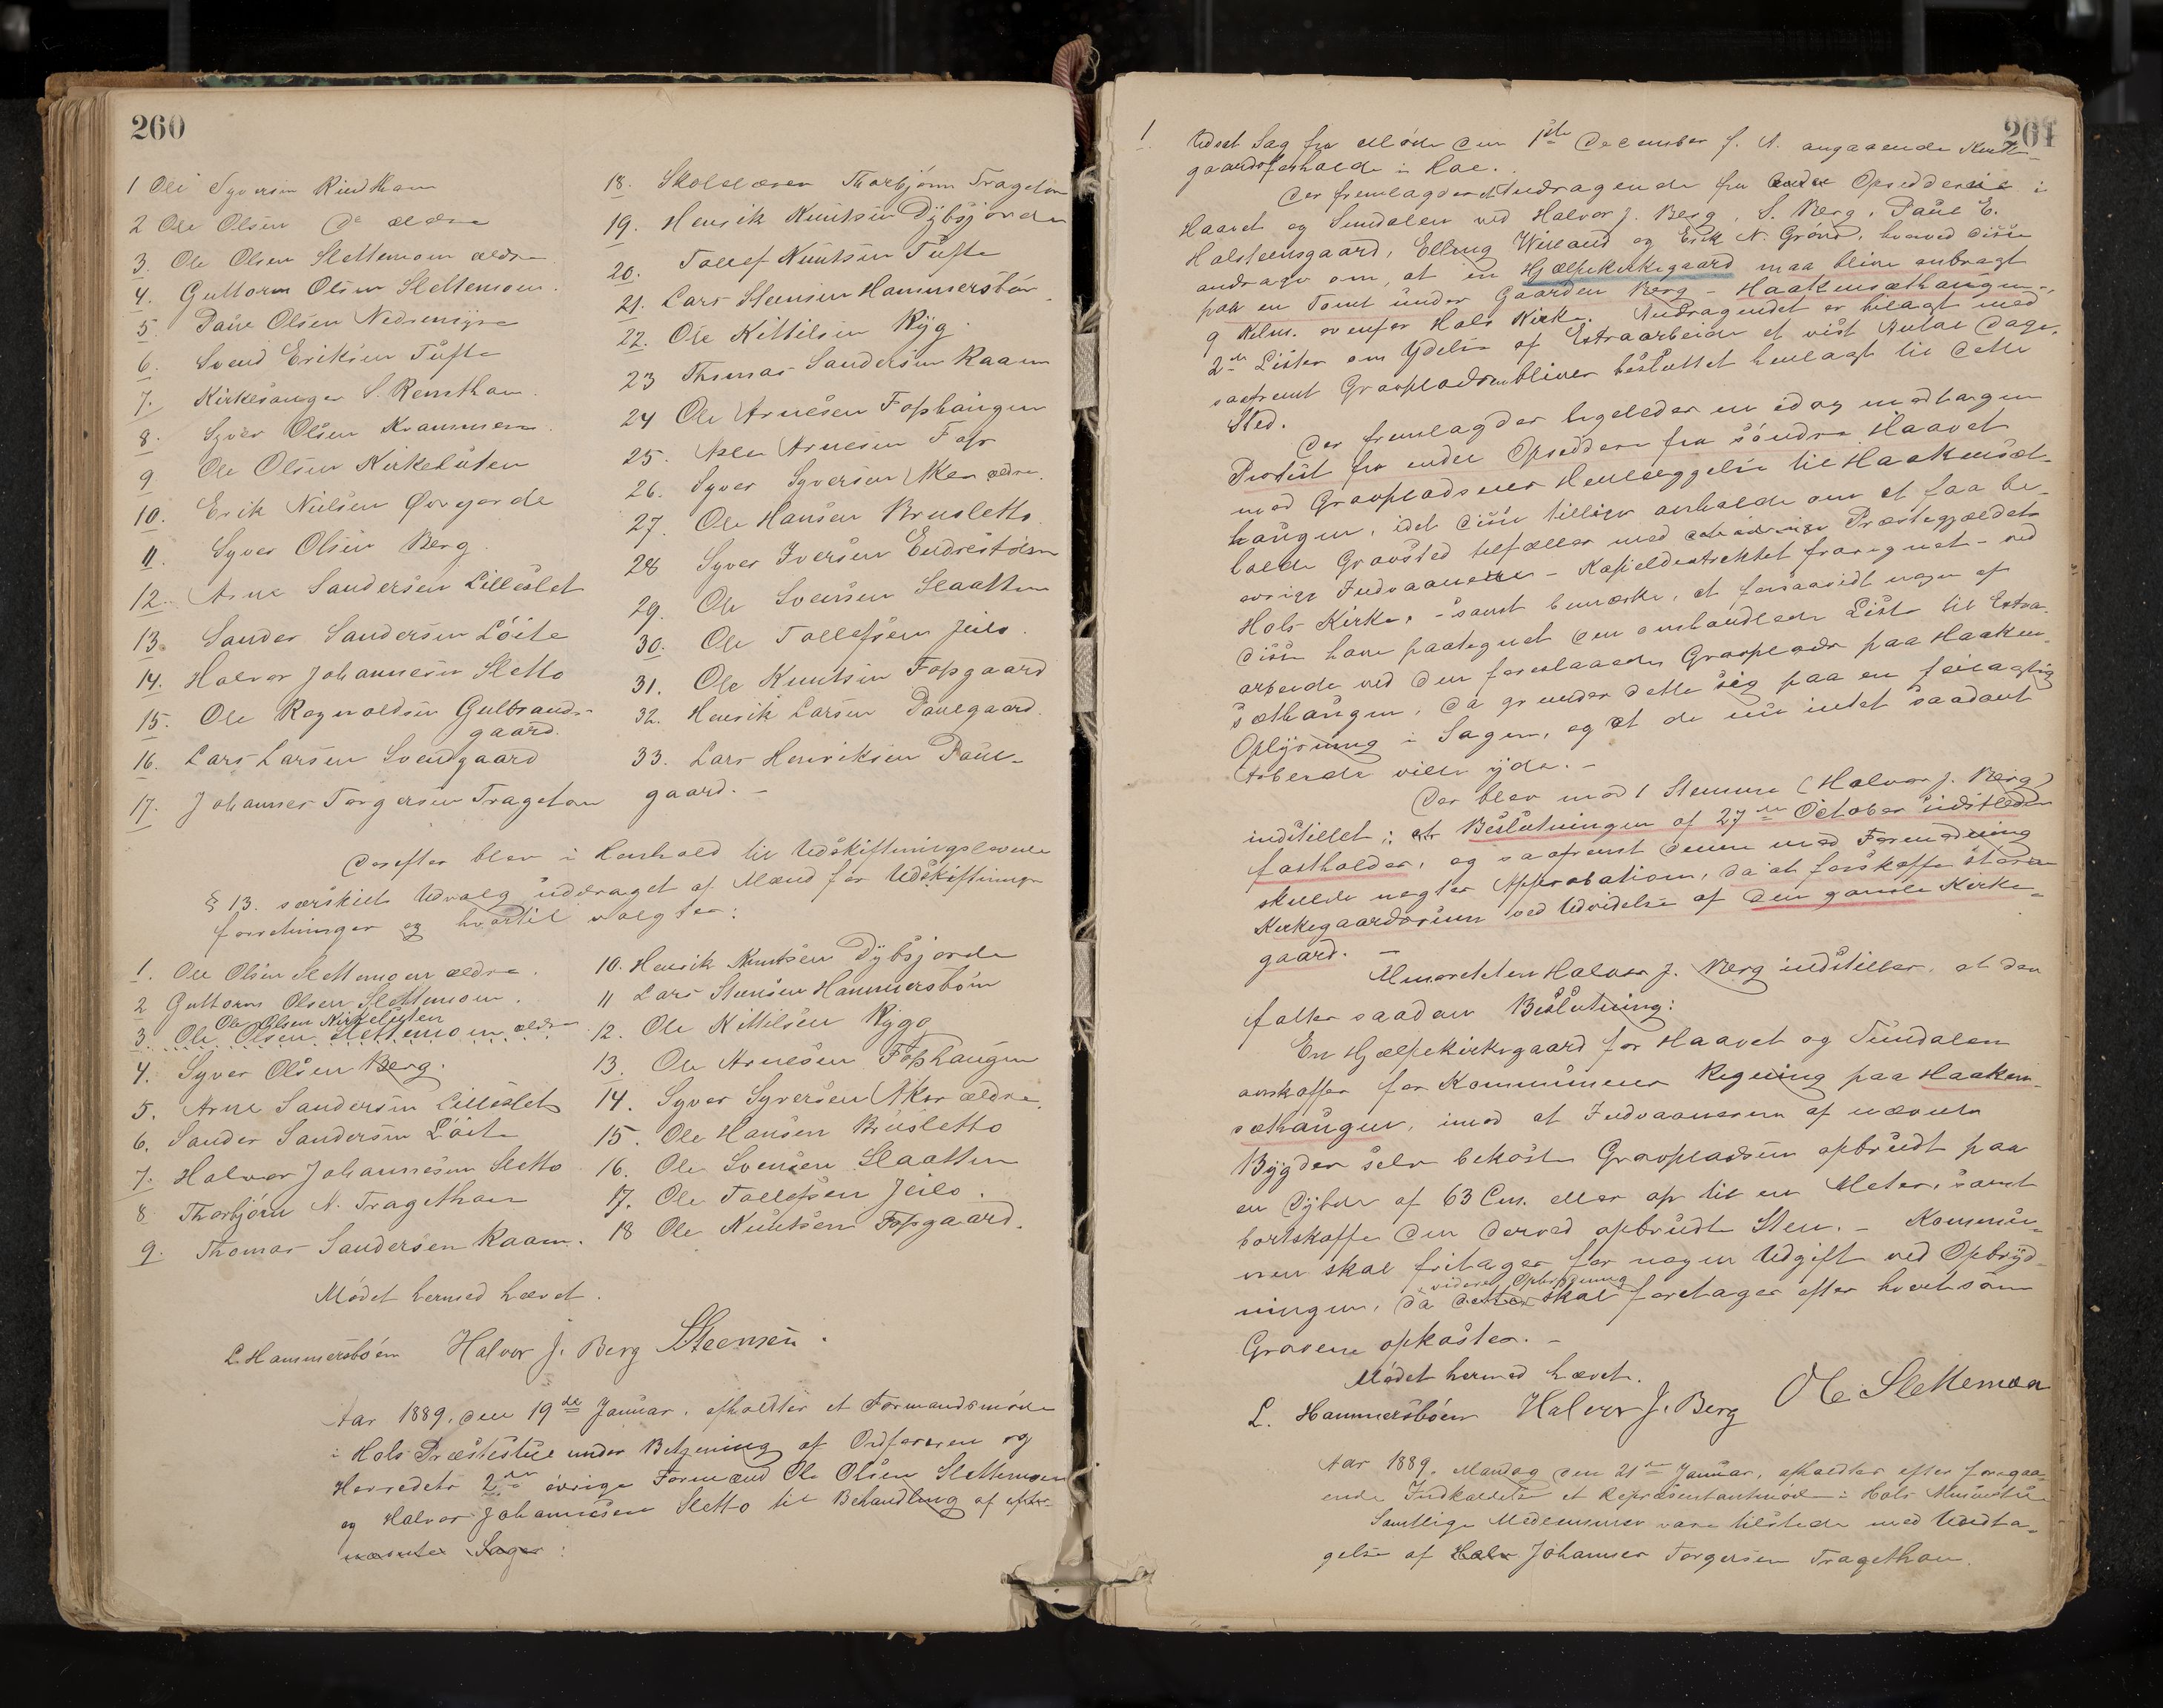 260
1 Ole Syversen Rindthan
2 Ole Olsen Do ældre
3. Ole Olsen Slettemoen ældre
4. Guttorm Olsen Slettemoen.
5. Paul Olsen Nedremyre
6. Svend Eriksen Tufte
7. Kirkesanger S. Rensthan.
8. Syver Olsen Kvammen.
9. Ole Olsen Kirkeluten
10. Erik Nielsen Øvrejorde
11. Syver Olsen Berg.
12. Arne Sandersen Lilleslet
13. Sander Sandersen Löite
14. Halvor Johannesen Sletto
15. Ole Ragnvaldsen Gulbrands-
gaard.
16. Lars Larsen Svendgaard
17. Johannes Torgersen Tragethon
18. Skolelærer Thorbjörn Tragethon
19. Henrik Knutsen Dybsjorde
20. Tollef Knutsen Tufte
21. Lars Steensen Hammersbön.
22. Ole Kittilsen Ryg.
23 Thomas Sandersen Raaen
24 Ole Arnesen Fosshaugen
25. Asle Arnesen Foss
26. Syver Syversen Aker ældre.
27. Ole Hansen Brusletto
28 Syver Iversen Endrestöen
29. Ole Svensen Slaatten
30. Ole Tollefsen Jeilo.
31. Ole Knutsen Fossgaard
32. Henrik Larsen Paulegaard.
33. Lars Henriksen Paule-
gaard. –
Derefter blev i Henhold til Udskiftningslovens
§ 13. særskilt Udvalg uddraget af Mænd for Udskiftnings
forretninger og hvortil valgtes:
1. Ole Olsen Slettemoen ældre.
2 Guttorm Olsen Slettemoen.
Ole Olsen Kirkeluten
3. Ole Olsen Slettemoen ældre
4. Syver Olsen Berg.
5. Arne Sandersen Lilleslet
6. Sander Sandersen Löite
7. Halvor Johannesen Sletto
8 Thorbjörn N. Tragethon
9. Thomas Sandersen Raaen.
10. Henrik Knutsen Dybsjorde
11 Lars Steensen Hammersböen
12. Ole Kittilsen Rygg
13. Ole Arnesen Fosshaugen
14. Syver Syversen Aker ældre.
15. Ole Hansen Brusletto
16. Ole Svensen Slaatten
17. Ole Tollefsen Jeilo.
18 Ole Knutsen Fossgaard.
Mödet hermed hævet.
L. Hammersböen Halvor J. Berg S Steensen.
Aar 1889, den 19de Januar, afholdtes et Formandsmöde
i Hols Præstestue under Betjening af Ordföreren og
Herredets 2de övrige Formænd Ole Olsen Slettemoen
og Halvor Johannesen Sletto til Behandling af efter-
nævnte Sager:
261
1. Udsat Sag fra Möde den 1ste December f. A. angaaende Kirke-
gaardsforholde i Hol.
Der fremlagdes et Andragende fra Opsiddere i
Haavet og Sundalen ved Halvor J. Berg, S. Berg, Paul E.
Holsteensgaard, Elling Villand og Erik N. Grönd, hvorved disse
andrager om, at en Hjælpekirkegaard maa blive anbragt
paa en Tomt under Gaarden Berg – Haakensæthaugen –,
9 Kilm. ovenfor Hols Kirke. Andragendet er bilagt med
2de Lister om Ydelse af Extraarbeide et vist Antal Dage,
saafremt Gravpladsen bliver besluttet henlagt til dette
Sted.
Der fremlagdes ligeledes en idag modtagen
Protest fra endel Opsiddere fra söndre Haavet
mod Gravpladsens Henlæggelse til Haakensæt-
haugen, idet disse tillige anholde om at faa be-
holde Gravsted tilfælles med Præstegjældets
övrige Indvaanere – Kapeldistriktet fraregnet – ved
Hols Kirke, – samt bemærke, at forsaavidt nogen af
disse have paategnet den omhandlede Liste til Extra-
arbeide ved den foreslaaede Gravplads paa Haaken-
sæthaugen, da grunder dette sig paa en feilagtig
Oplysning i Sagen, og at de nu intet saadant
Arbeide ville yde. –
Der blev mod 1 Stemme (Halvor J. Berg)
indstillet: at Beslutningen af 27de October sidstleden
fastholdes, og saafremt denne mod Formodning
skulde negtes Approbation, da at forskaffe större
Kirkegaardsrum ved Udvidelse af den gamle Kirke-
gaard. –
Minoriteten Halvor J. Berg indstiller, at der
fattes saadan Beslutning:
En Hjælpekirkegaard for Haavet og Sundalen
anskaffes for Kommunens Regning paa Haaken-
sæthaugen, imod at Indvaanerne af nævnte
Bygder selv bekoste Gravpladsen opbrudt paa
en Dybde af 63 Cm. eller op til en Meter, samt
bortskaffe den derved opbrudte Sten. – Kommu-
nen skal fritages for nogen Udgift ved Opbryd-
videre Opbrydning
ningen, da dette skal foretages efter hvert som
Gravene opkastes. –
Mödet hermed hævet.
L. Hammersböen Halvor J. Berg Ole Slettemoen
Aar 1889, Mandag den 21de Januar, afholdtes efter foregaa-
ende Indkaldelse et Repræsentantmöde i Hols
Samtlige Medlemmer vare tilstede med Undta-
gelse af Halv Johannes Torgersen Tragethon.